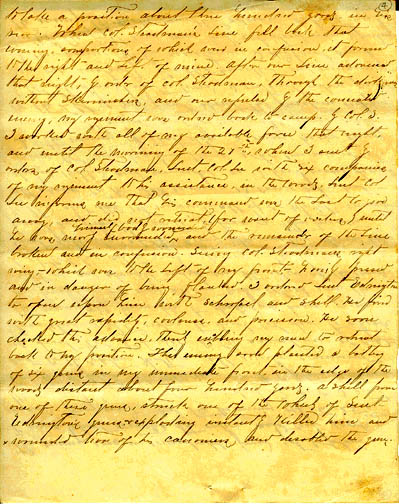 to take a position about three hundred yards in the
rear. When Col. Steedman's line fell back that
evening, comportions of which was in confusion, it formed
to the right and left of mine. After our line advanced
that night, by order of Col. Steedman, through the
without Skirmishers, and was repulsed by the concealed
enemy, my regiment was ordered back to camp. by Col. S.
I worked with all of my available force that night
and until the morning of the 21st, when I sent by
orders of Col. Steedman, Lieut. Col. Lee with six companies
of my regiment to his assistance in the woods. Lieut. Col.
Lee informs me that his command was the last to
away, and did not retreat (for want of orders) until
he was nearly surrounded, and the remainder of the line
broken and in confusion. Seeing Col. Steedman's right
wing which was to the left of my front, being
and in danger of being flanked, I ordered Lieut.
to open upon them with schrapel and shell. He fired
with great rapidity, coolness, and precision. He soon
checked this advance, thus enabling my men to
back to my position. The enemy soon planted a battery
of six guns in my immediate front, in the edge of the
woods distant about four hundred yards. A shell from
one of these guns, struck one of the wheels of Lieut
guns exploding instantly killed nine and
wounded two of his cannoniers, and disabled the gun.